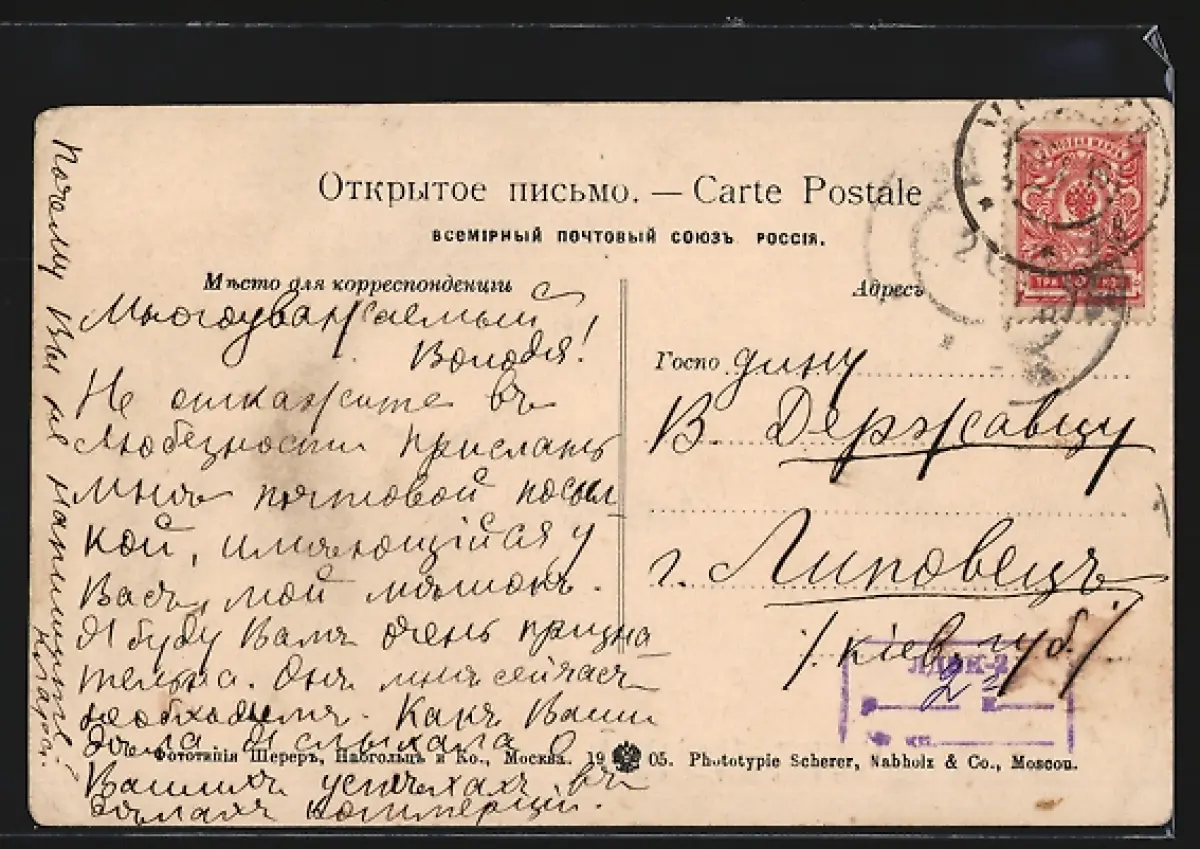 Открытое письмо. — Carte Postale
ВСЕМІРНЫЙ ПОЧТОВЫЙ СОЮЗЪ РОССІЯ.
Мѣсто для корреспонденціи
Многоуважаемый
Володя!
Не откажите въ
любезности прислать
мнѣ почтовой посыл
кой, имѣющійся у
Васъ, мой мѣшокъ.
Я буду Вамъ очень призна
тельна. Онъ мнѣ сейчасъ
необходимъ. Какъ Ваши
дѣла Я слыхала о
Вашихъ успѣхахъ въ
дѣлахъ коммерціи.
Почему Вы не напишите?
Клара.
Адресъ
Господину
В. Державцу
г. Липовецъ
/кіев. губ./
ТРИ КОП
ЛДФК-2
Фототипія Шереръ, Набгольцъ и Ко., Москва. 1905. Phototypie Scherer, Nabholz & Co., Moscou.